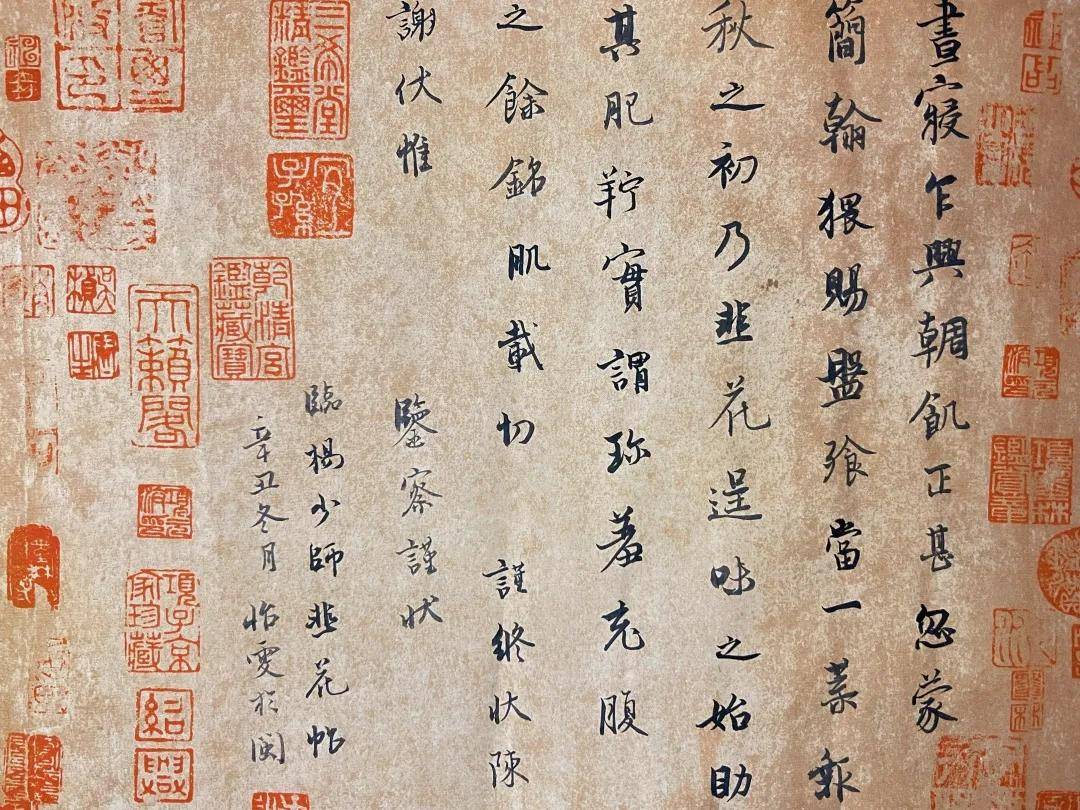 晝寢乍興輖飢正甚忽蒙
簡翰猥賜盤飧當一葉報
秋之初乃韭花逞味之始助
其肥羜實謂珍羞充腹
之餘銘肌載切 謹修狀陳
謝伏惟
鑒察謹狀
臨楊少師韭花帖
辛丑冬月 怡雯於閩
三希堂精鑑璽
宜子孫
乾清宮鑑藏寶
天籟閣
項子京家珍藏
紹興
項元汴印